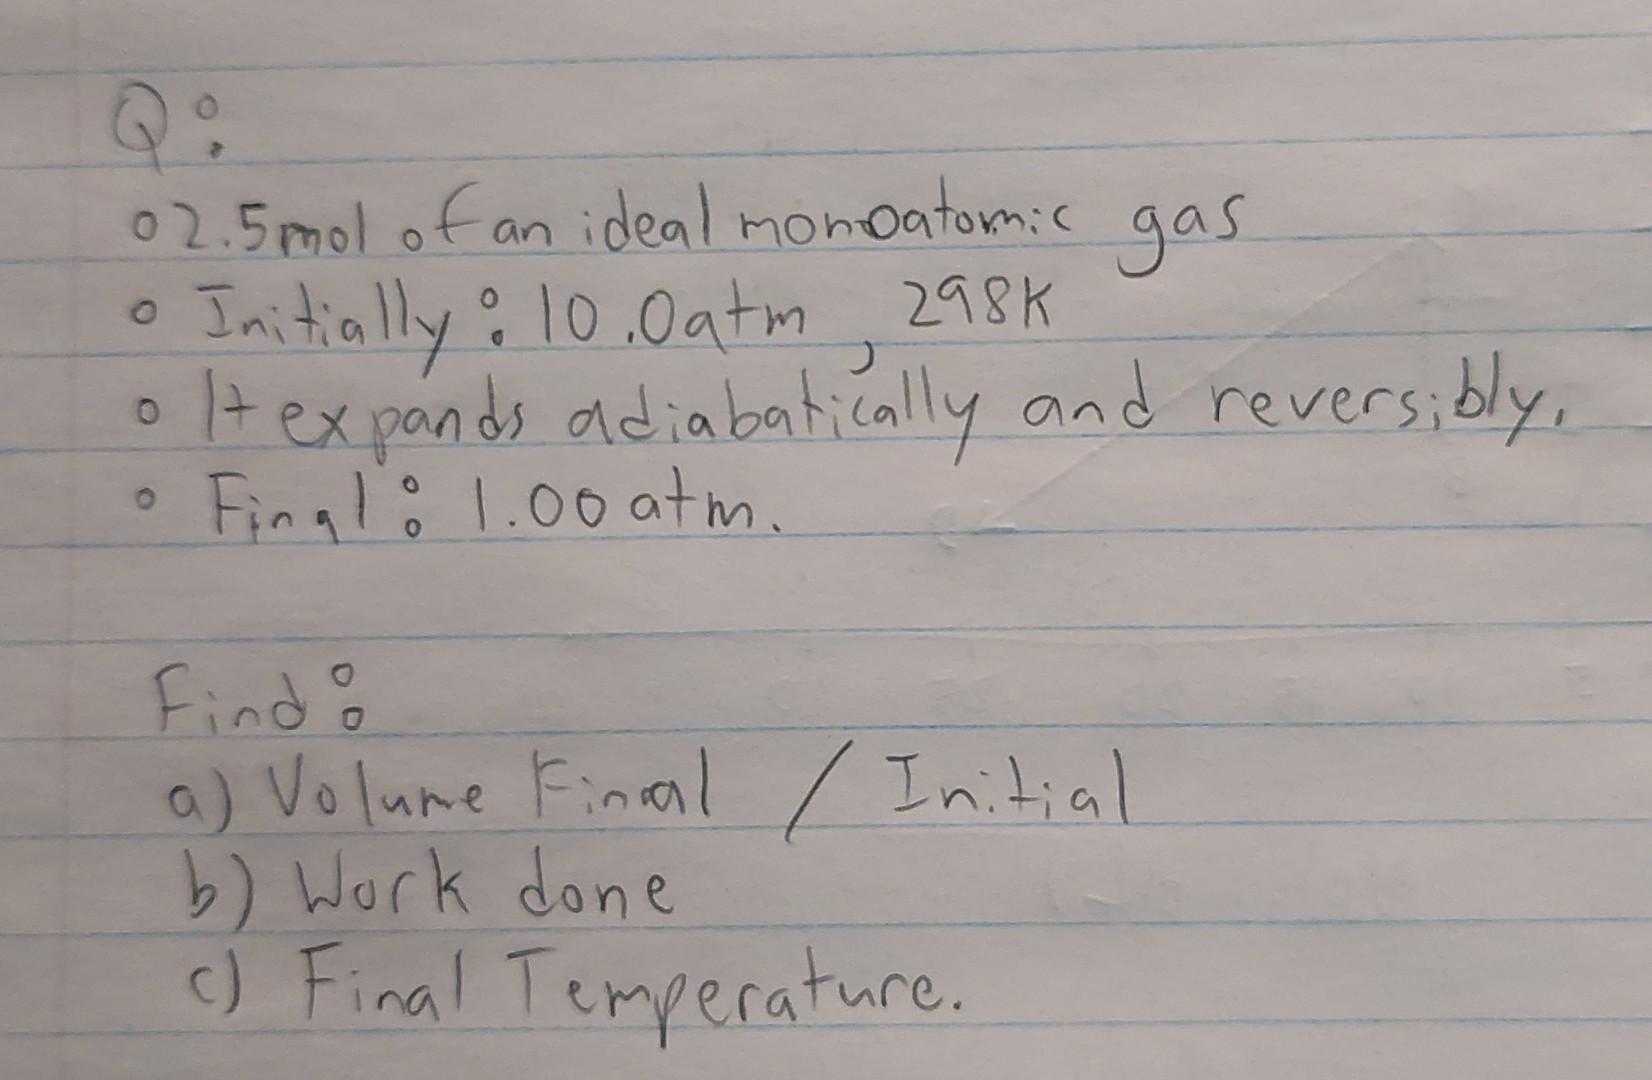 Q:
o 2.5mol of an ideal monoatomic gas
o Initially: 10.0atm, 298K
o It expands adiabatically and reversibly.
o Final: 1.00 atm.
Find:
a) Volume Final / Initial
b) Work done
c) Final Temperature.